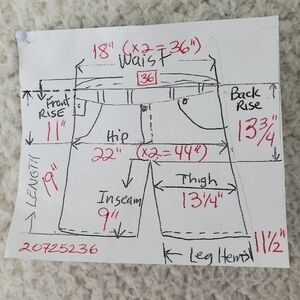 18" (x2=36")
WAIST
36
Front
RISE
11"
Back
RISE
13 3/4"
Hip
22" (x2=44")
LENGTH
19"
Inseam
9"
Thigh
13 1/4"
11 1/2"
Leg Hem
20725236